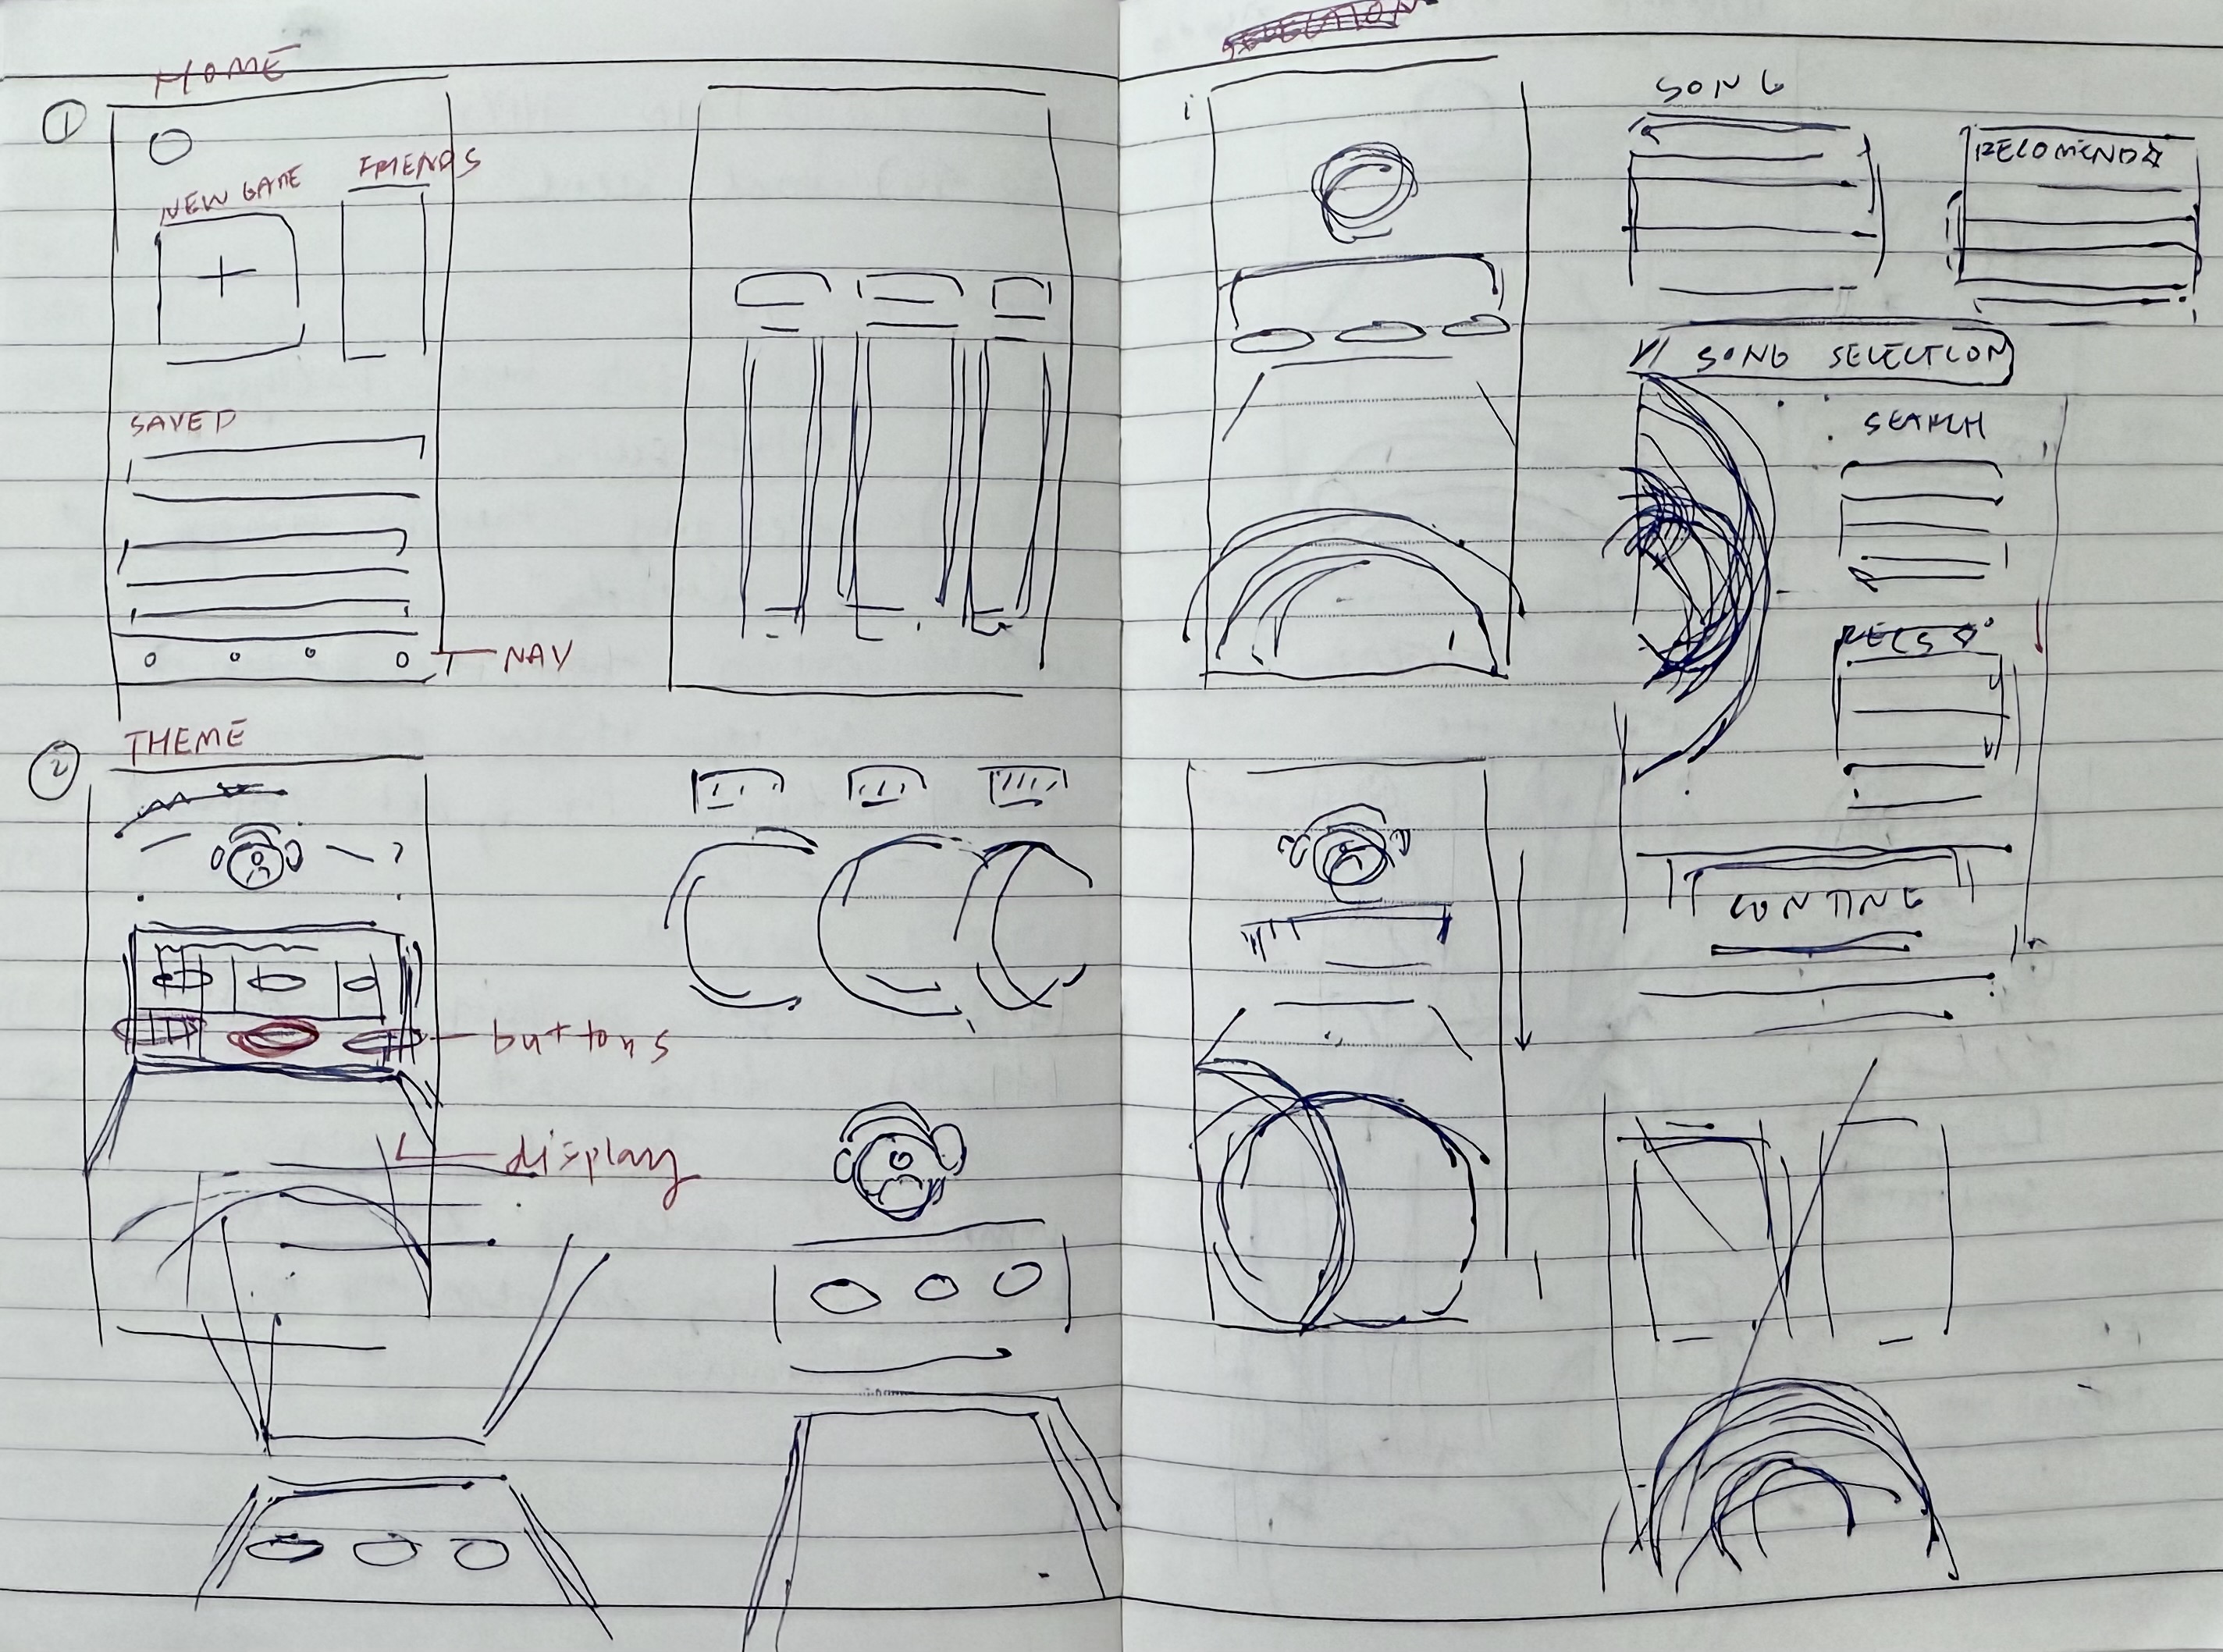 HOME
1
NEW GAME
FRIENDS
SAVED
NAV
2
THEME
buttons
display
SELECTION
i
SONG
RECOMEND
SONG SELECTION
SEARCH
RECS
CONTINE